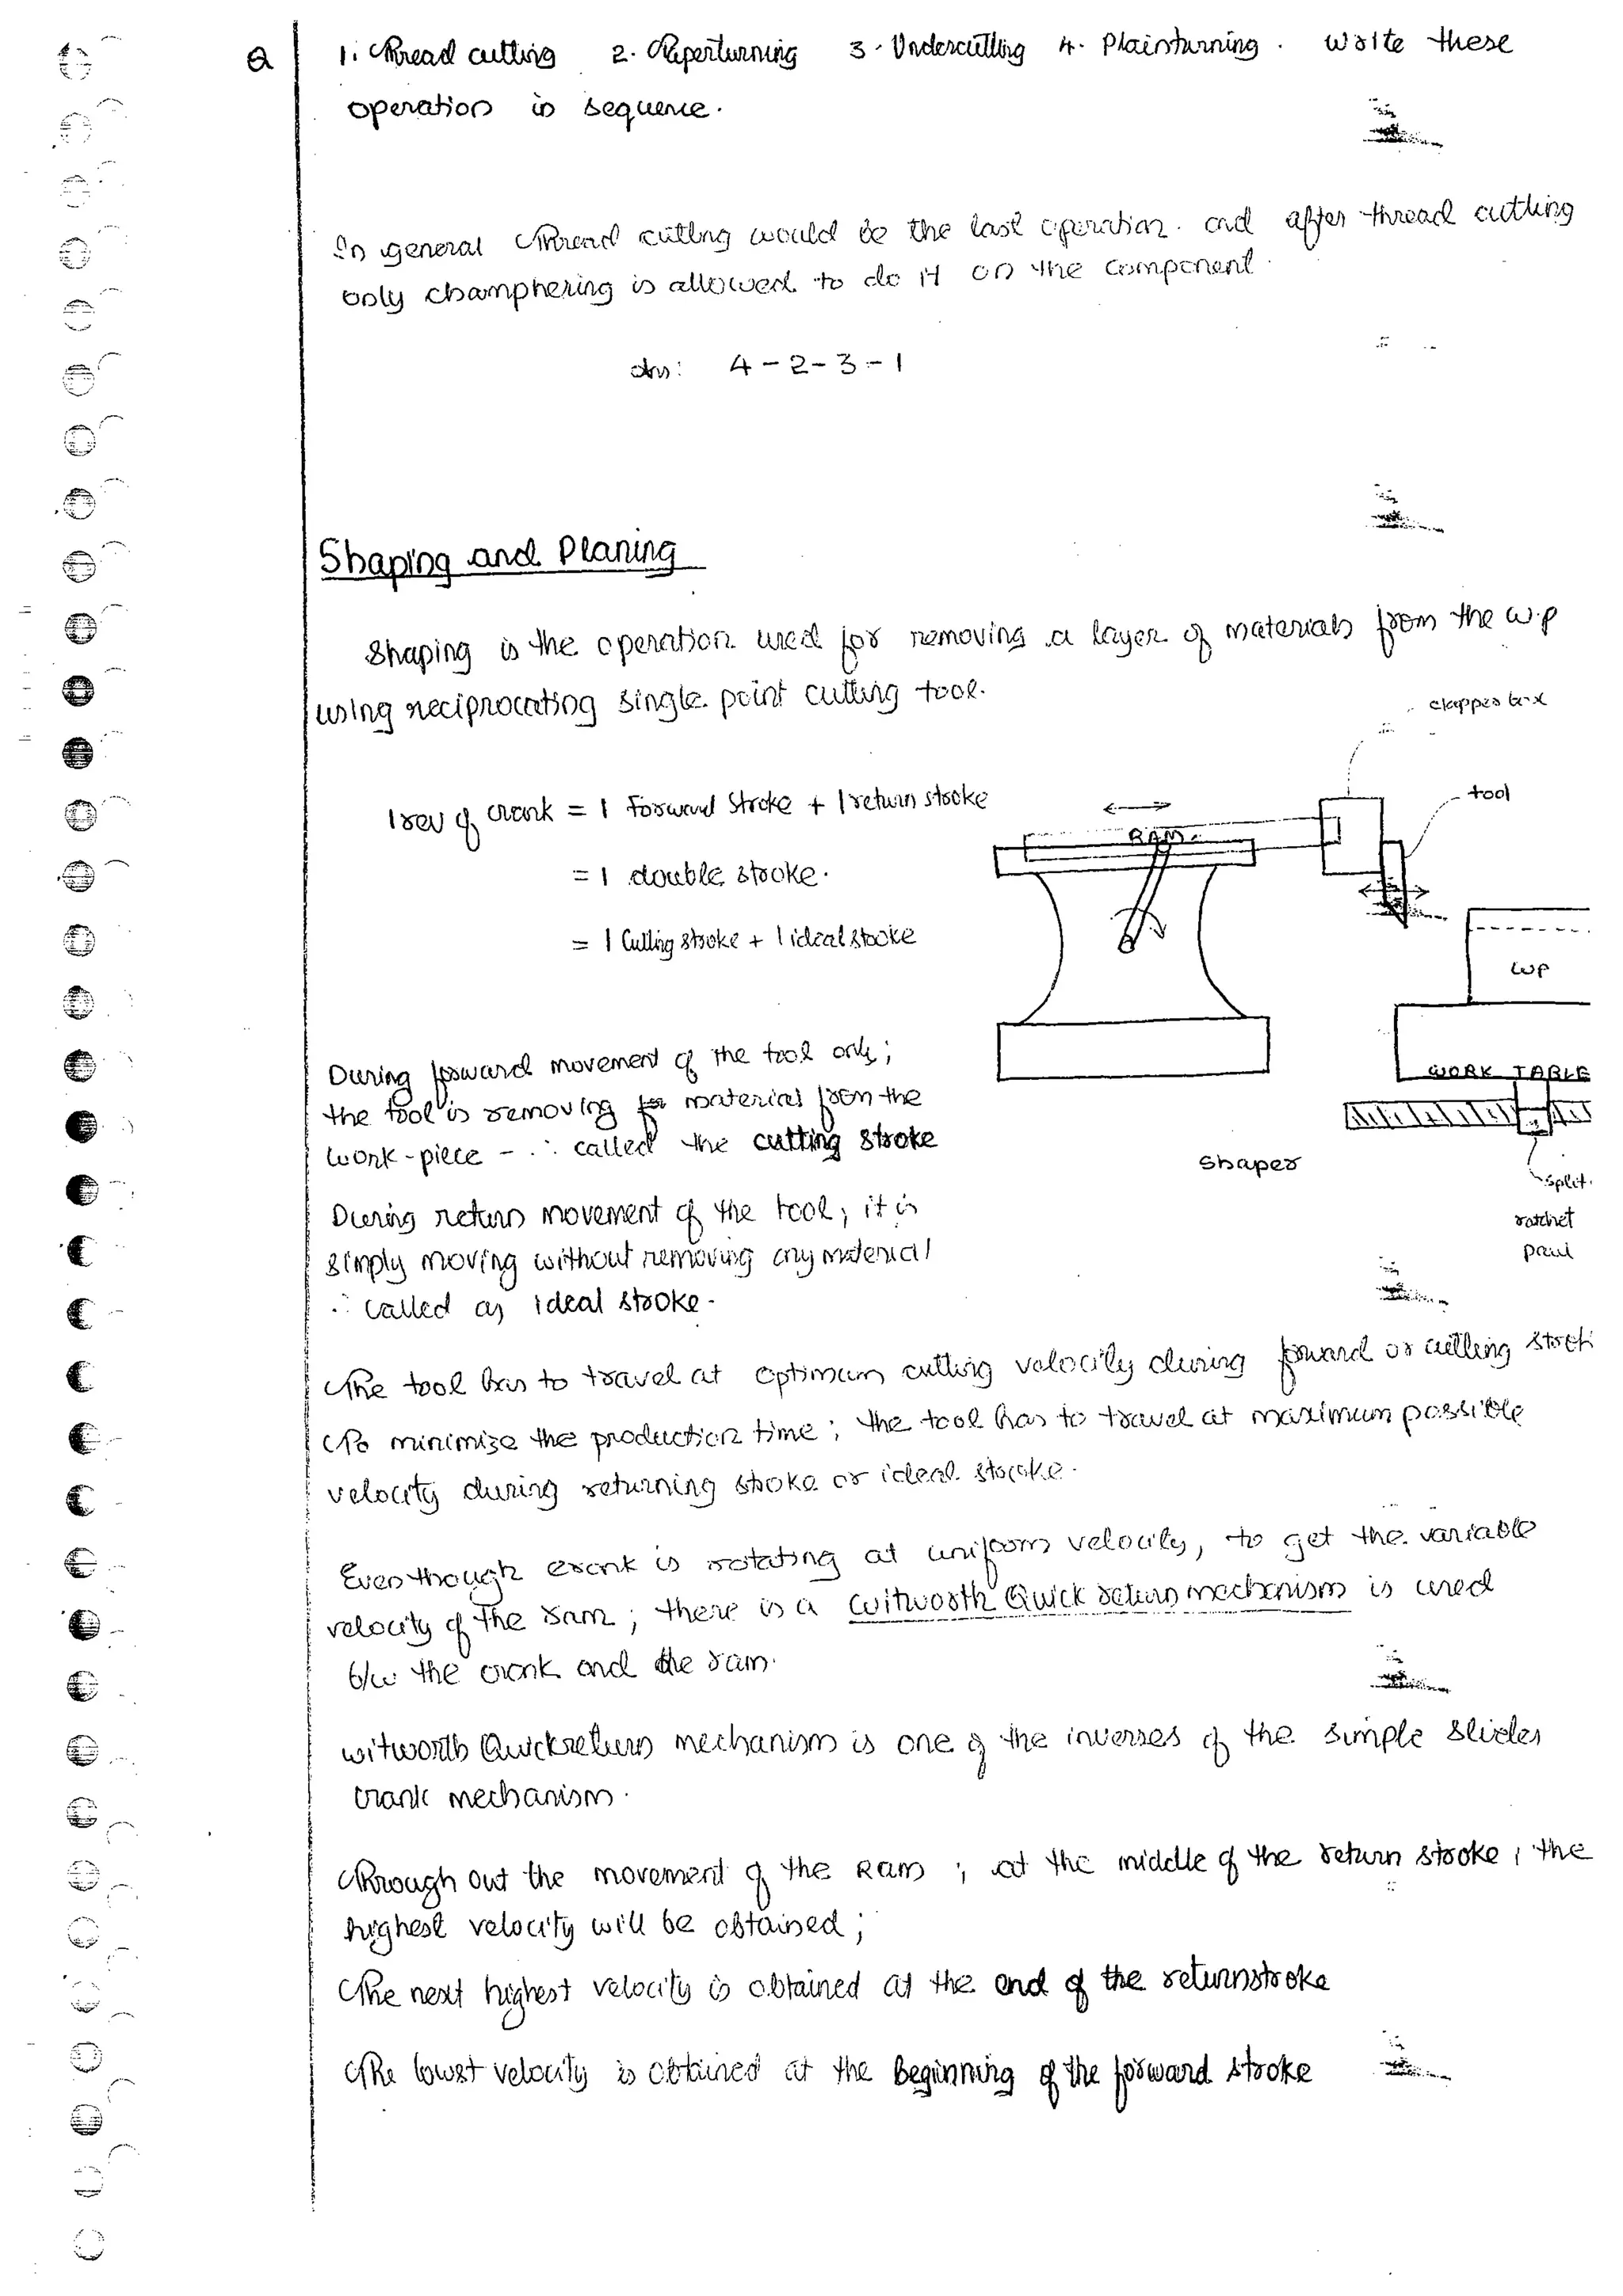 Q 1. Thread cutting 2. Taperturning 3. Undercutting 4. Plainturning. Write these
operation in sequence.
In general Thread cutting would be the last operation. and after thread cutting
only champhering is allowed to do it on the component.
Ans: 4-2-3-1
Shaping and Planing
Shaping is the operation used for removing a layer of materials from the w.p
using reciprocating single point cutting tool.
clapper box
1 rev of crank = 1 forward stroke + 1 return stroke
tool
RAM
= 1 double stroke.
= 1 Cutting stroke + 1 ideal stroke
WP
During forward movement of the tool only;
WORK TABLE
the tool is removing material from the
work-piece - ∴ called the cutting stroke
Shaper
split
During return movement of the tool; it is
ratchet
simply moving without removing any material
pawl
∴ called as ideal stroke.
The tool has to travel at optimum cutting velocity during forward or cutting
To minimize the production time; the tool has to travel at maximum possible
velocity during returning stroke or ideal stroke.
Even though crank is rotating at uniform velocity, to get the variable
velocity of the ram; there is a witworth Quick return mechanism is used
b/w the crank and the ram.
witworth Quickreturn mechanism is one of the inverses of the simple slider
crank mechanism.
Through out the movement of the Ram; at the middle of the return stroke, the
highest velocity will be obtained;
The next highest velocity is obtained at the end of the returnstroke
The lowst velocity is obtained at the Beginning of the forward stroke